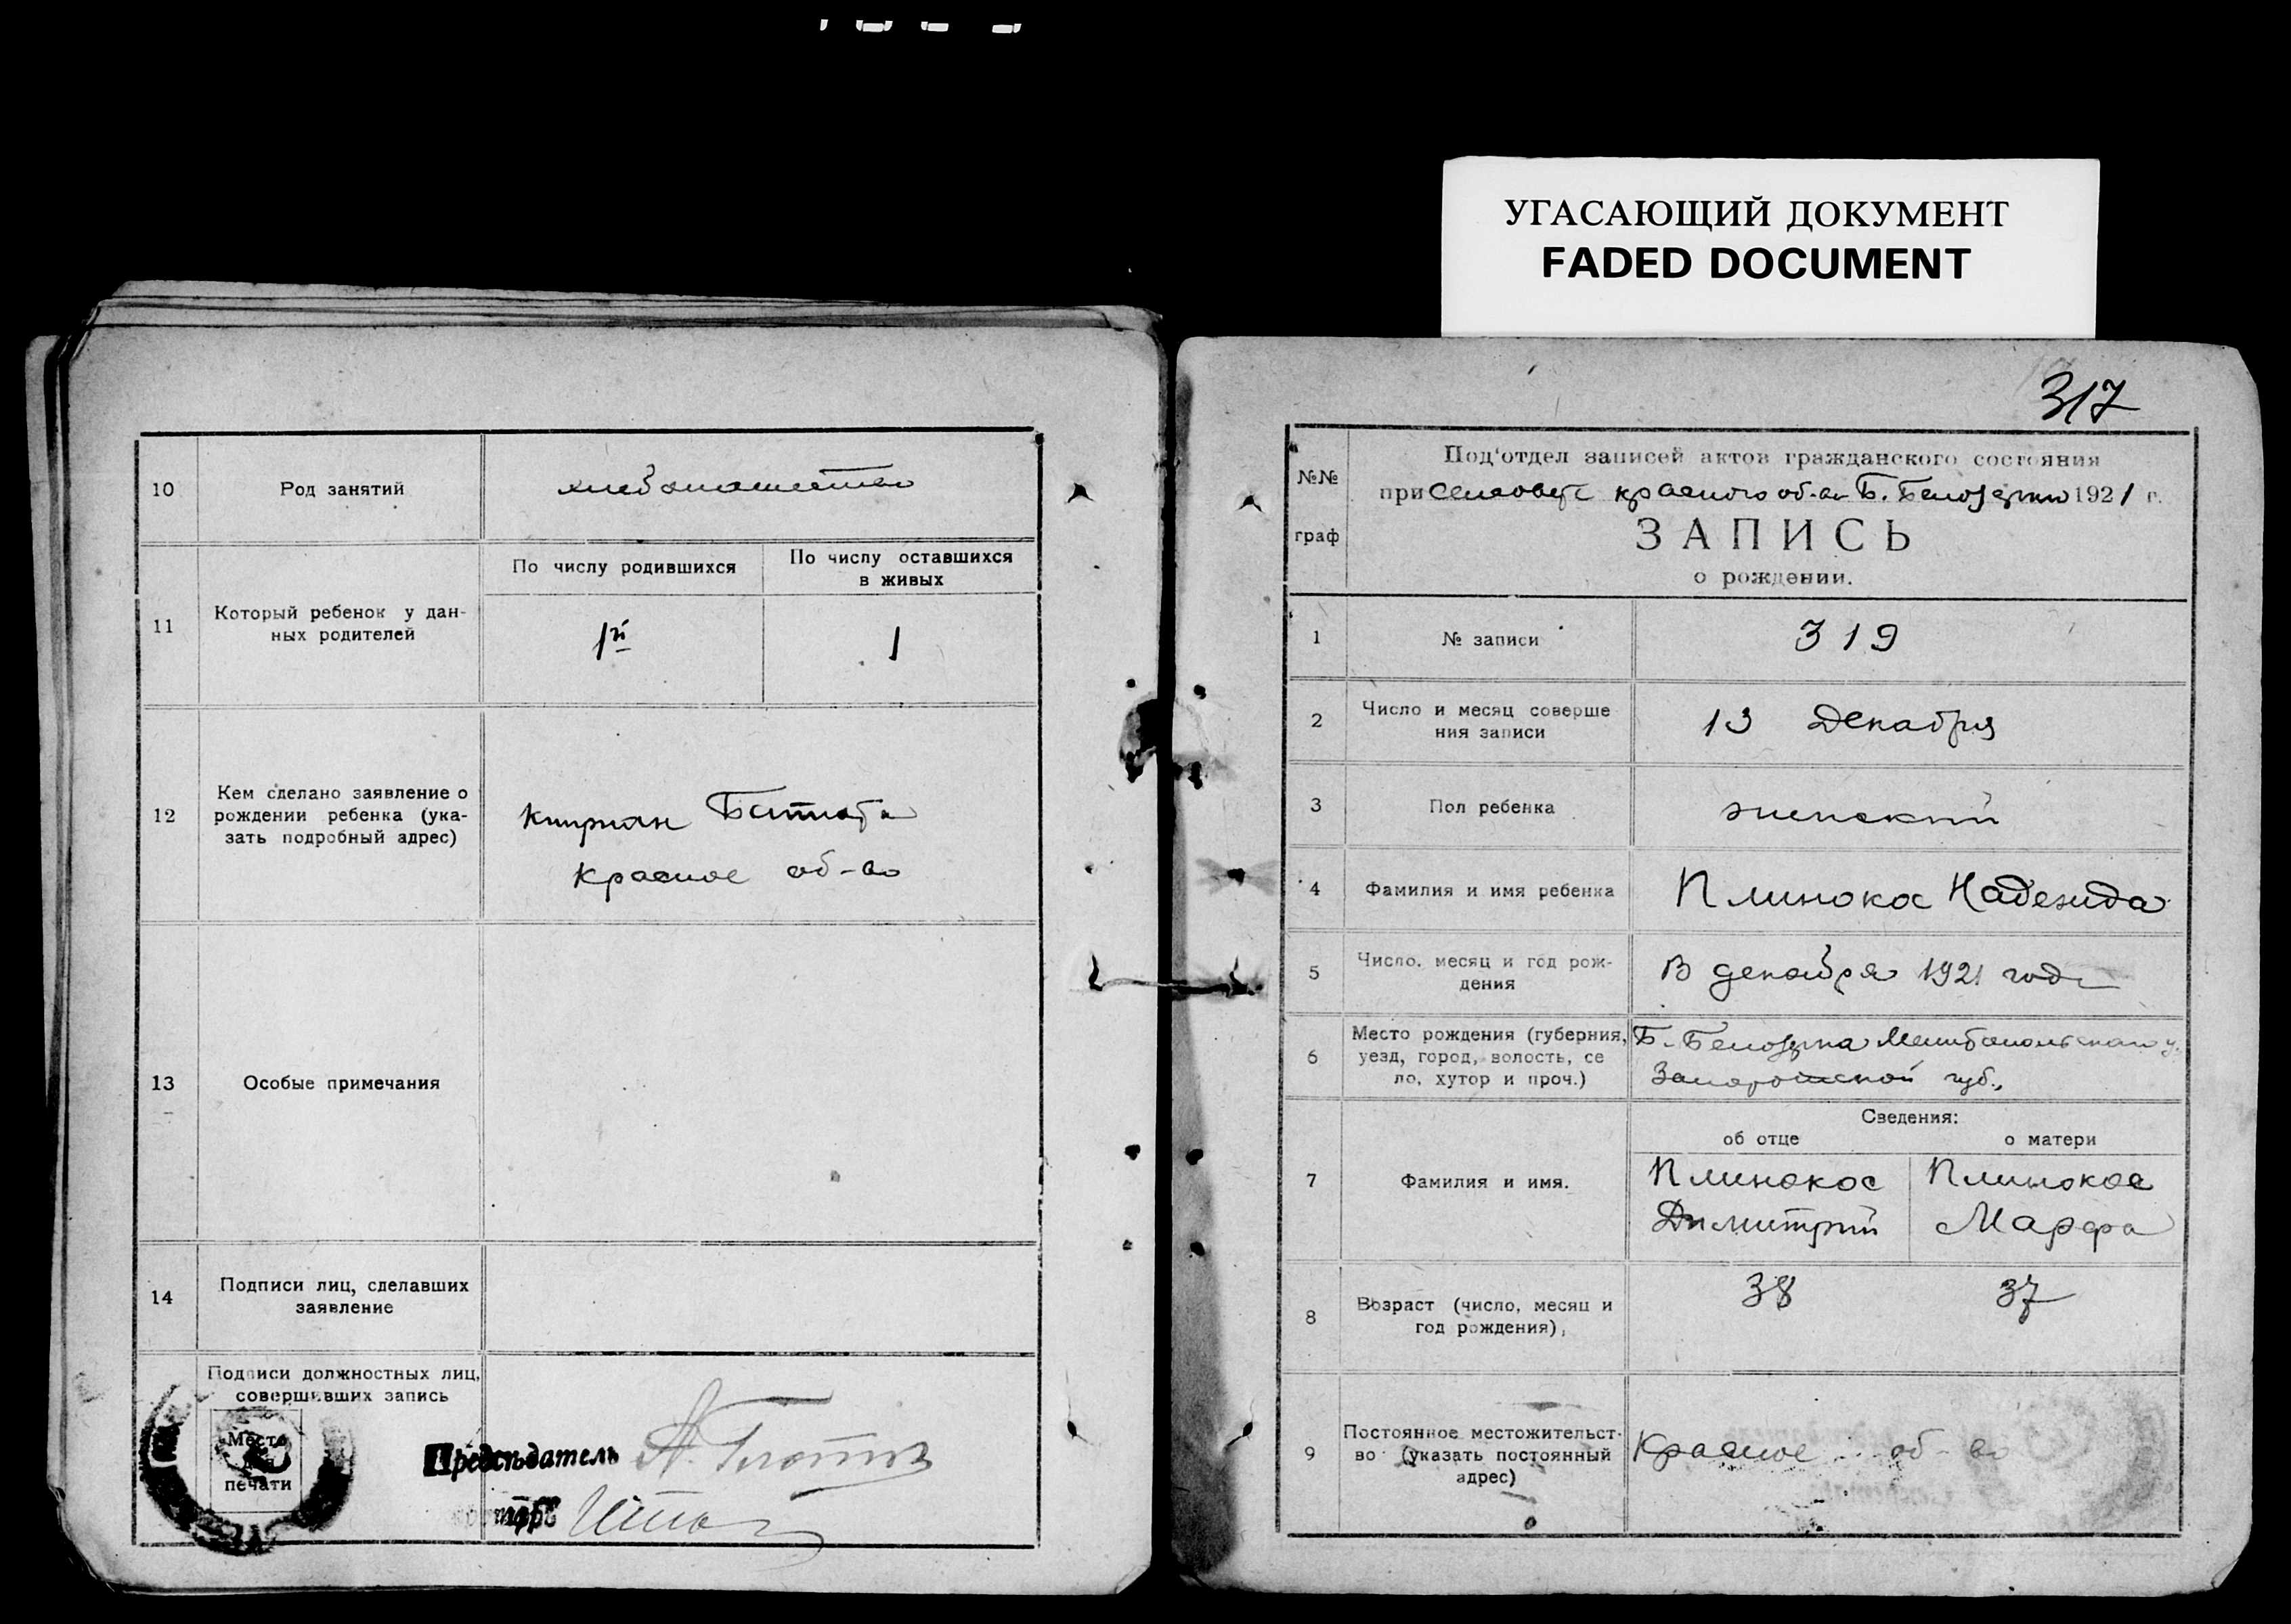 УГАСАЮЩИЙ ДОКУМЕНТ
FADED DOCUMENT
10
Род занятий
хлебопашество
11
Который ребенок у дан-
ных родителей
По числу родившихся
По числу оставшихся
в живых
1й
1
12
Кем сделано заявление о
рождении ребенка (ука-
зать подробный адрес)
Киприан
Красное об-во
13
Особые примечания
14
Подписи лиц, сделавших
заявление
Подписи должностных лиц,
совершивших запись
Место
печати
Председатель
317
№№
граф
Под'отдел записей актов гражданского состояния
при Сельсовете красного об-ва Б. Белозерки 1921 г.
ЗАПИСЬ
о рождении.
1
№ записи
319
2
Число и месяц соверше
ния записи
13 Декабря
3
Пол ребенка
женский
4
Фамилия и имя ребенка
Плинокос Надежда
5
Число, месяц и год рож-
дения
декабря 1921 года
6
Место рождения (губерния,
уезд, город, волость, се
ло, хутор и проч.)
Б-Белозерка Мелитопольского у.
Запорожской губ.,
Сведения:
об отце
о матери
7
Фамилия и имя.
Плинокос
Димитрий
Плинокос
Марфа
8
Возраст (число, месяц и
год рождения),
38
37
9
Постоянное местожительст-
во (указать постоянный
адрес)
Красное об-во